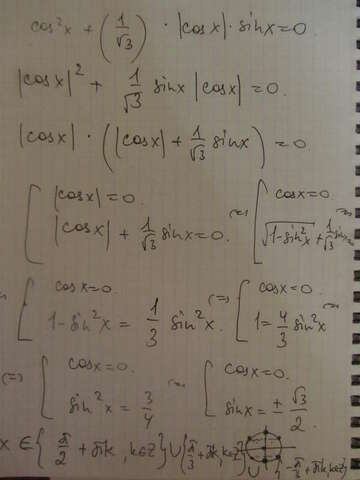 cos²x + (1/√3) · |cosx| · sinx = 0.
|cosx|² + 1/√3 sinx |cosx| = 0.
|cosx| · (|cosx| + 1/√3 sinx) = 0.
[ |cosx| = 0. |cosx| + 1/√3 sinx = 0. <=> [ cosx = 0. √(1-sin²x) + 1/√3 sinx
[ cosx = 0. 1-sin²x = 1/3 sin²x. <=> [ cosx = 0. 1 = 4/3 sin²x <=>
<=> [ cosx = 0. sin²x = 3/4 <=> [ cosx = 0. sinx = ± √3/2.
x ∈ { π/2 + πk, k∈Z } ∪ { π/3 + πk, k∈Z } ∪ { -π/3 + πk, k∈Z }